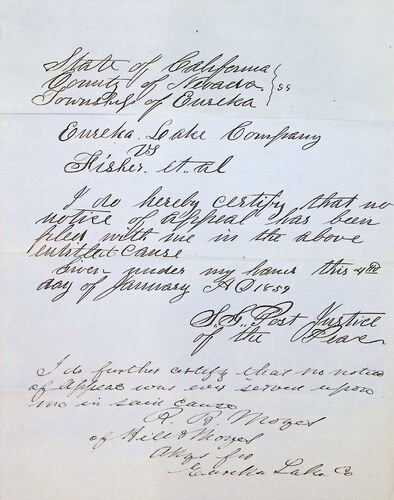 State of California
County of Nevada } ss
Township of Eureka
Eureka Lake Company
vs
Fisher et. al
I do hereby certify that no
notice of appeal has been
filed with me in the above
entitled cause
Given under my hand this 4th
day of January AD 1859
Post Justice
of the Peace
I do further certify that no notice
of appeal was ever served upon
me in said cause
of Hill & Moyes
Attys for
Eureka Lake Co